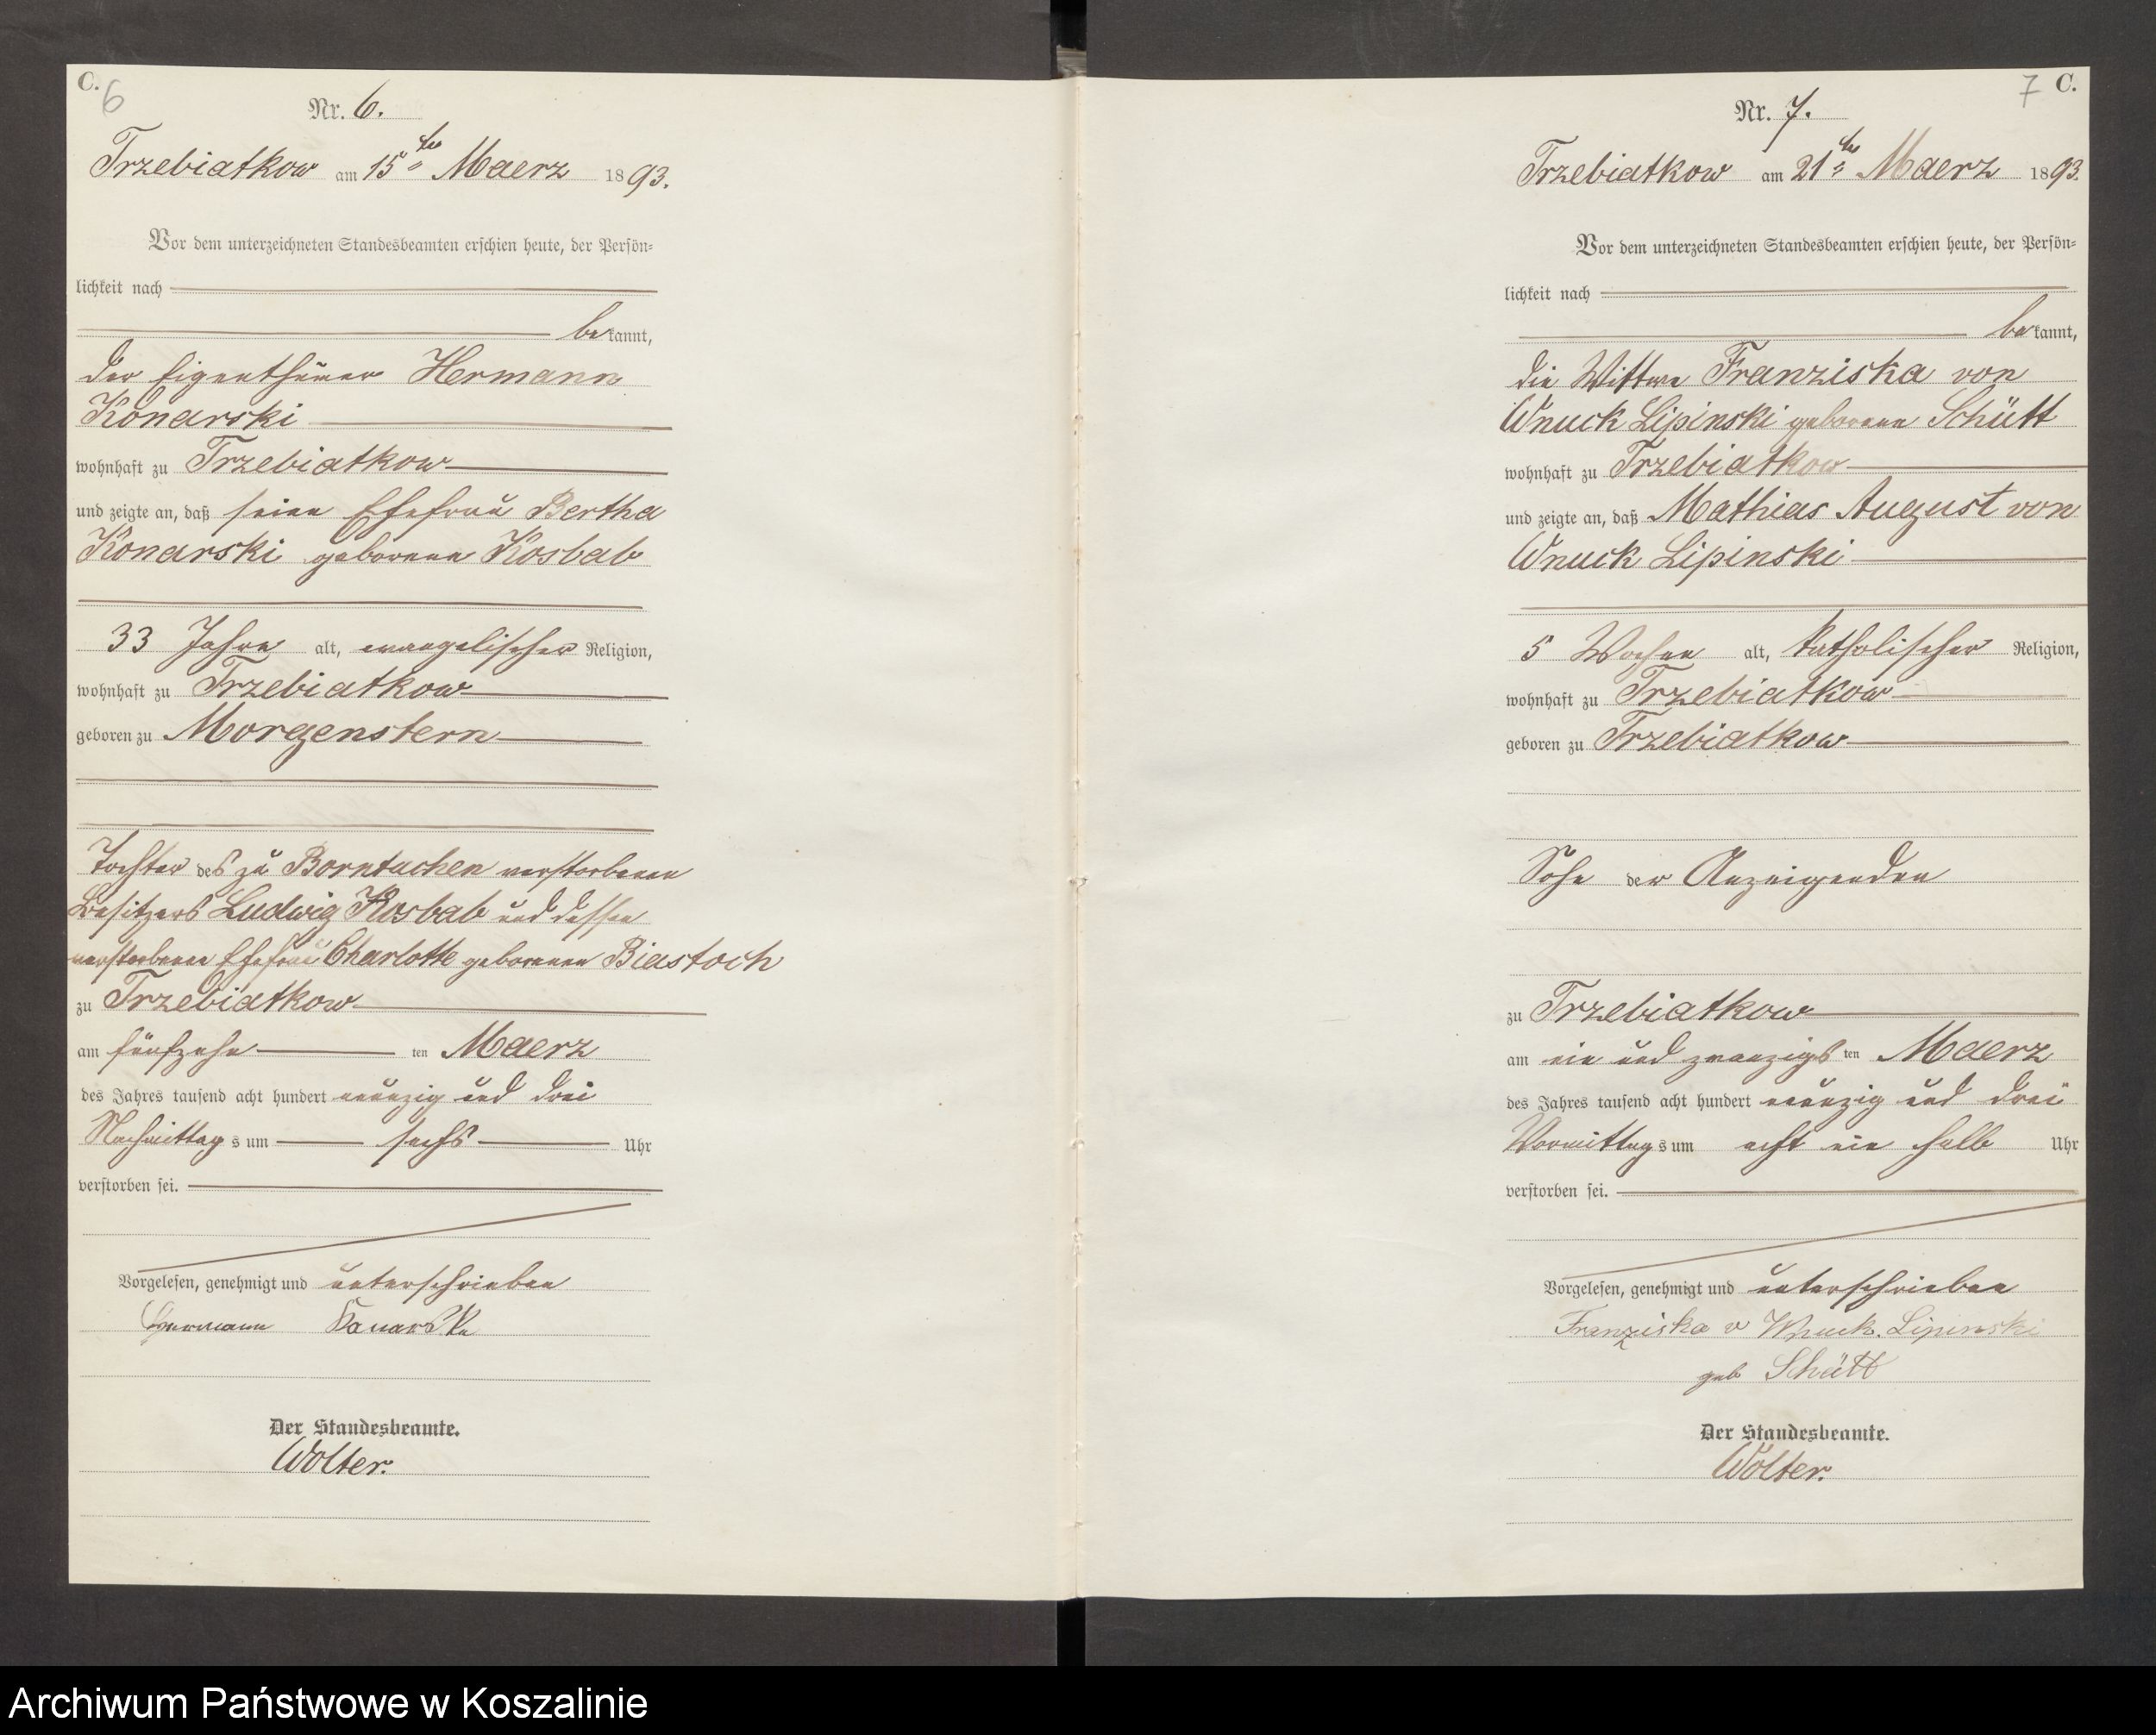 C.
6
Nr. 6.
Trzebiatkow am 15ten Maerz 1893.
Vor dem unterzeichneten Standesbeamten erschien heute, der Persön-
lichkeit nach
bekannt,
der Eigenthümer Hermann
Konarski
wohnhaft zu Trzebiatkow
und zeigte an, daß seine Ehefrau Bertha
Konarski geborene Kosbab
33 Jahre alt, evangelischer Religion,
wohnhaft zu Trzebiatkow
geboren zu Morgenstern
Tochter des zu Borntuchen verstorbenen
Besitzers Ludwig Kosbab und dessen
verstorbener Ehefrau Charlotte geborenen Biastoch
zu Trzebiatkow
am fünfzehn ten Maerz
des Jahres tausend acht hundert neunzig und drei
Nachmittags um sechs Uhr
verstorben sei.
Vorgelesen, genehmigt und unterschrieben
Hermann Konarski
Der Standesbeamte.
Wolter.
7 C.
Nr. 7.
Trzebiatkow am 21ten Maerz 1893.
Vor dem unterzeichneten Standesbeamten erschien heute, der Persön-
lichkeit nach
bekannt,
die Wittwe Franziska von
Wnuck Lipinski geborene Schütt
wohnhaft zu Trzebiatkow
und zeigte an, daß Mathias August von
Wnuck Lipinski
5 Wochen alt, katholischer Religion,
wohnhaft zu Trzebiatkow
geboren zu Trzebiatkow
Sohn der Anzeigenden
zu Trzebiatkow
am ein und zwanzigs ten Maerz
des Jahres tausend acht hundert neunzig und drei
Vormittags um acht ein halb Uhr
verstorben sei.
Vorgelesen, genehmigt und unterschrieben
Franziska v Wnuck. Lipinski
geb Schütt
Der Standesbeamte.
Wolter.
Archiwum Państwowe w Koszalinie